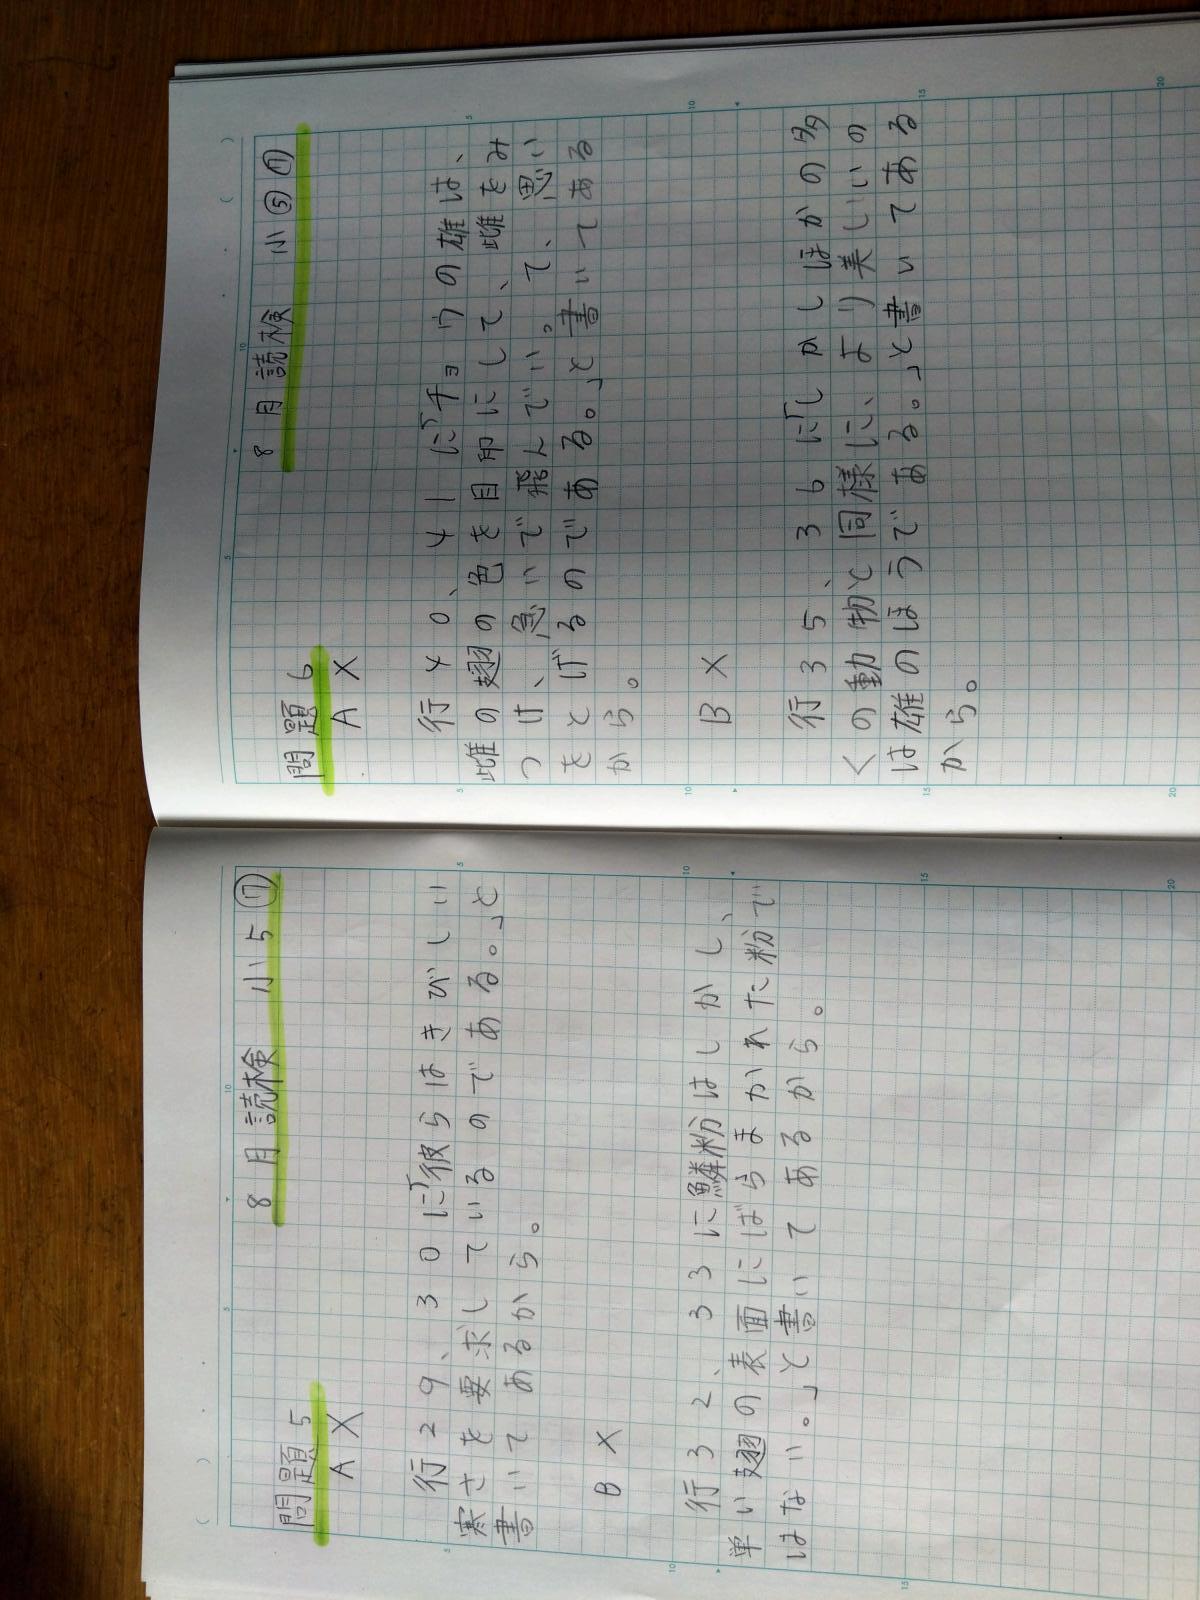 8月読検 小5⑪
問題5
A ×
行29、30に「彼らはきびしい
寒さを要求しているのである。」と
書いてあるから。
B ×
行32、33に鱗粉はしかし、
単い翅の表面にばらまかれた粉で
はない。」と書いてあるから。
8月読検 小⑤⑪
問題6
A ×
行40、41に「チョウの雄は、
雌の翅の色を目印にして、雌をみ
つけ、急いで飛んでいい。て、思い
をとげるのである。」と書いてある
から。
B ×
行35、36に「しかしほかの多
くの動物と同様に、より美しいの
は雄のほうである。」と書いてある
から。
5
10
15
20